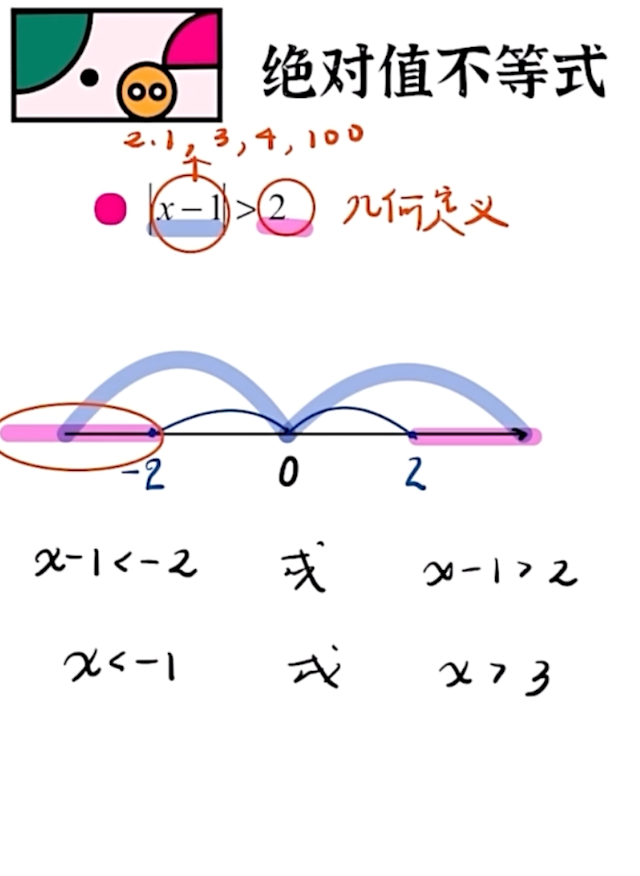 绝对值不等式
2.1, 3, 4, 100
|x-1|>2 几何定义
-2 0 2
x-1<-2 或 x-1>2
x<-1 或 x>3